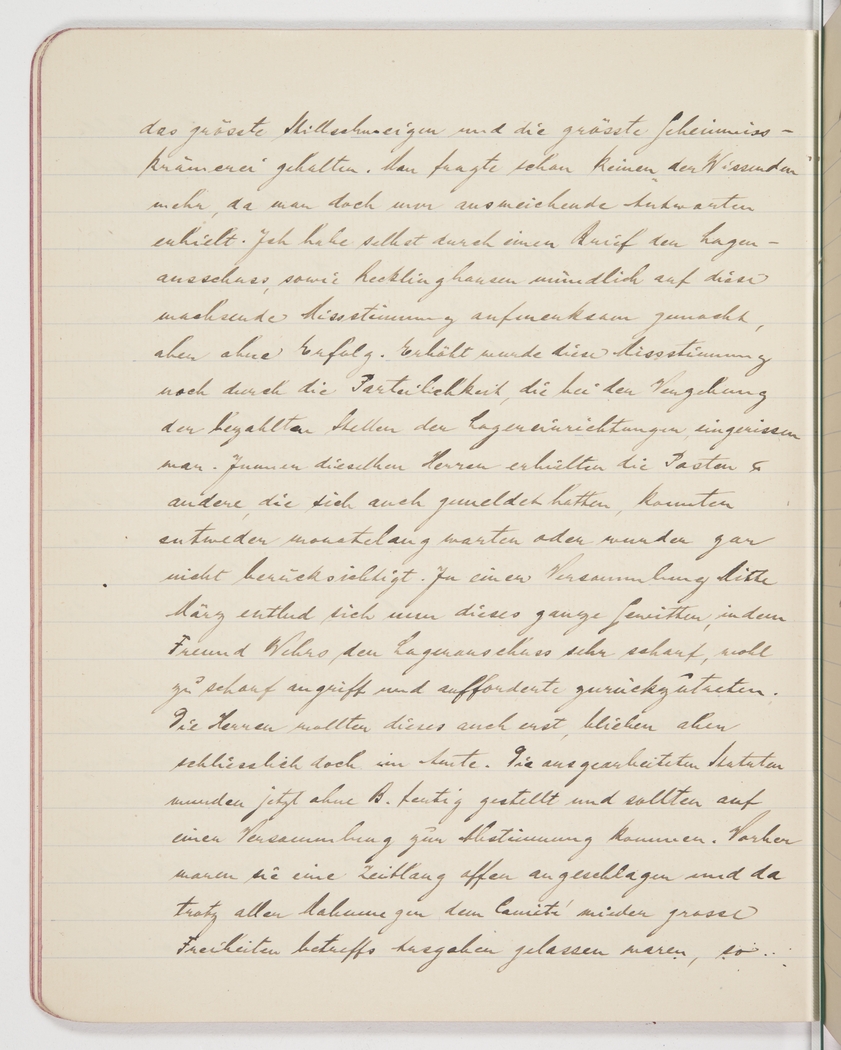 das grösste Stillschweigen und die grösste Geheimniss-
krämerei gehalten. Man fragte schon keinen der "Wissenden"
mehr, da man doch nur ausweichende Antworten
erhielt. Ich habe selbst durch einen Brief den Lager-
ausschuss, sowie Recklinghausen mündlich auf diese
wachsende Missstimmung aufmerksam gemacht,
aber ohne Erfolg. Erhöht wurde diese Missstimmung
noch durch die Parteilichkeit, die bei der Vergebung
der bezahlten Stellen der Lagereinrichtungen eingerissen
war. Immer dieselben Herren erhielten die Posten &
andere, die sich auch gemeldet hatten, konnten
entweder monatelang warten oder wurden gar
nicht berücksichtigt. In einer Versammlung Mitte
März entlud sich nun dieses ganze Gewitter, indem
Freund Wehrs den Lagerausschuss sehr scharf, wohl
zu scharf angriff und aufforderte zurückzutreten.
Die Herren wollten dieses auch erst, blieben aber
schliesslich doch im Amte. Die ausgearbeiteten Statuten
wurden jetzt ohne B. fertig gestellt und sollten auf
einer Versammlung zur Abstimmung kommen. Vorher
waren sie eine Zeitlang offen angeschlagen und da
trotz aller Mahnungen dem Comité wieder grosse
Freiheiten betreffs Ausgaben gelassen waren, so...